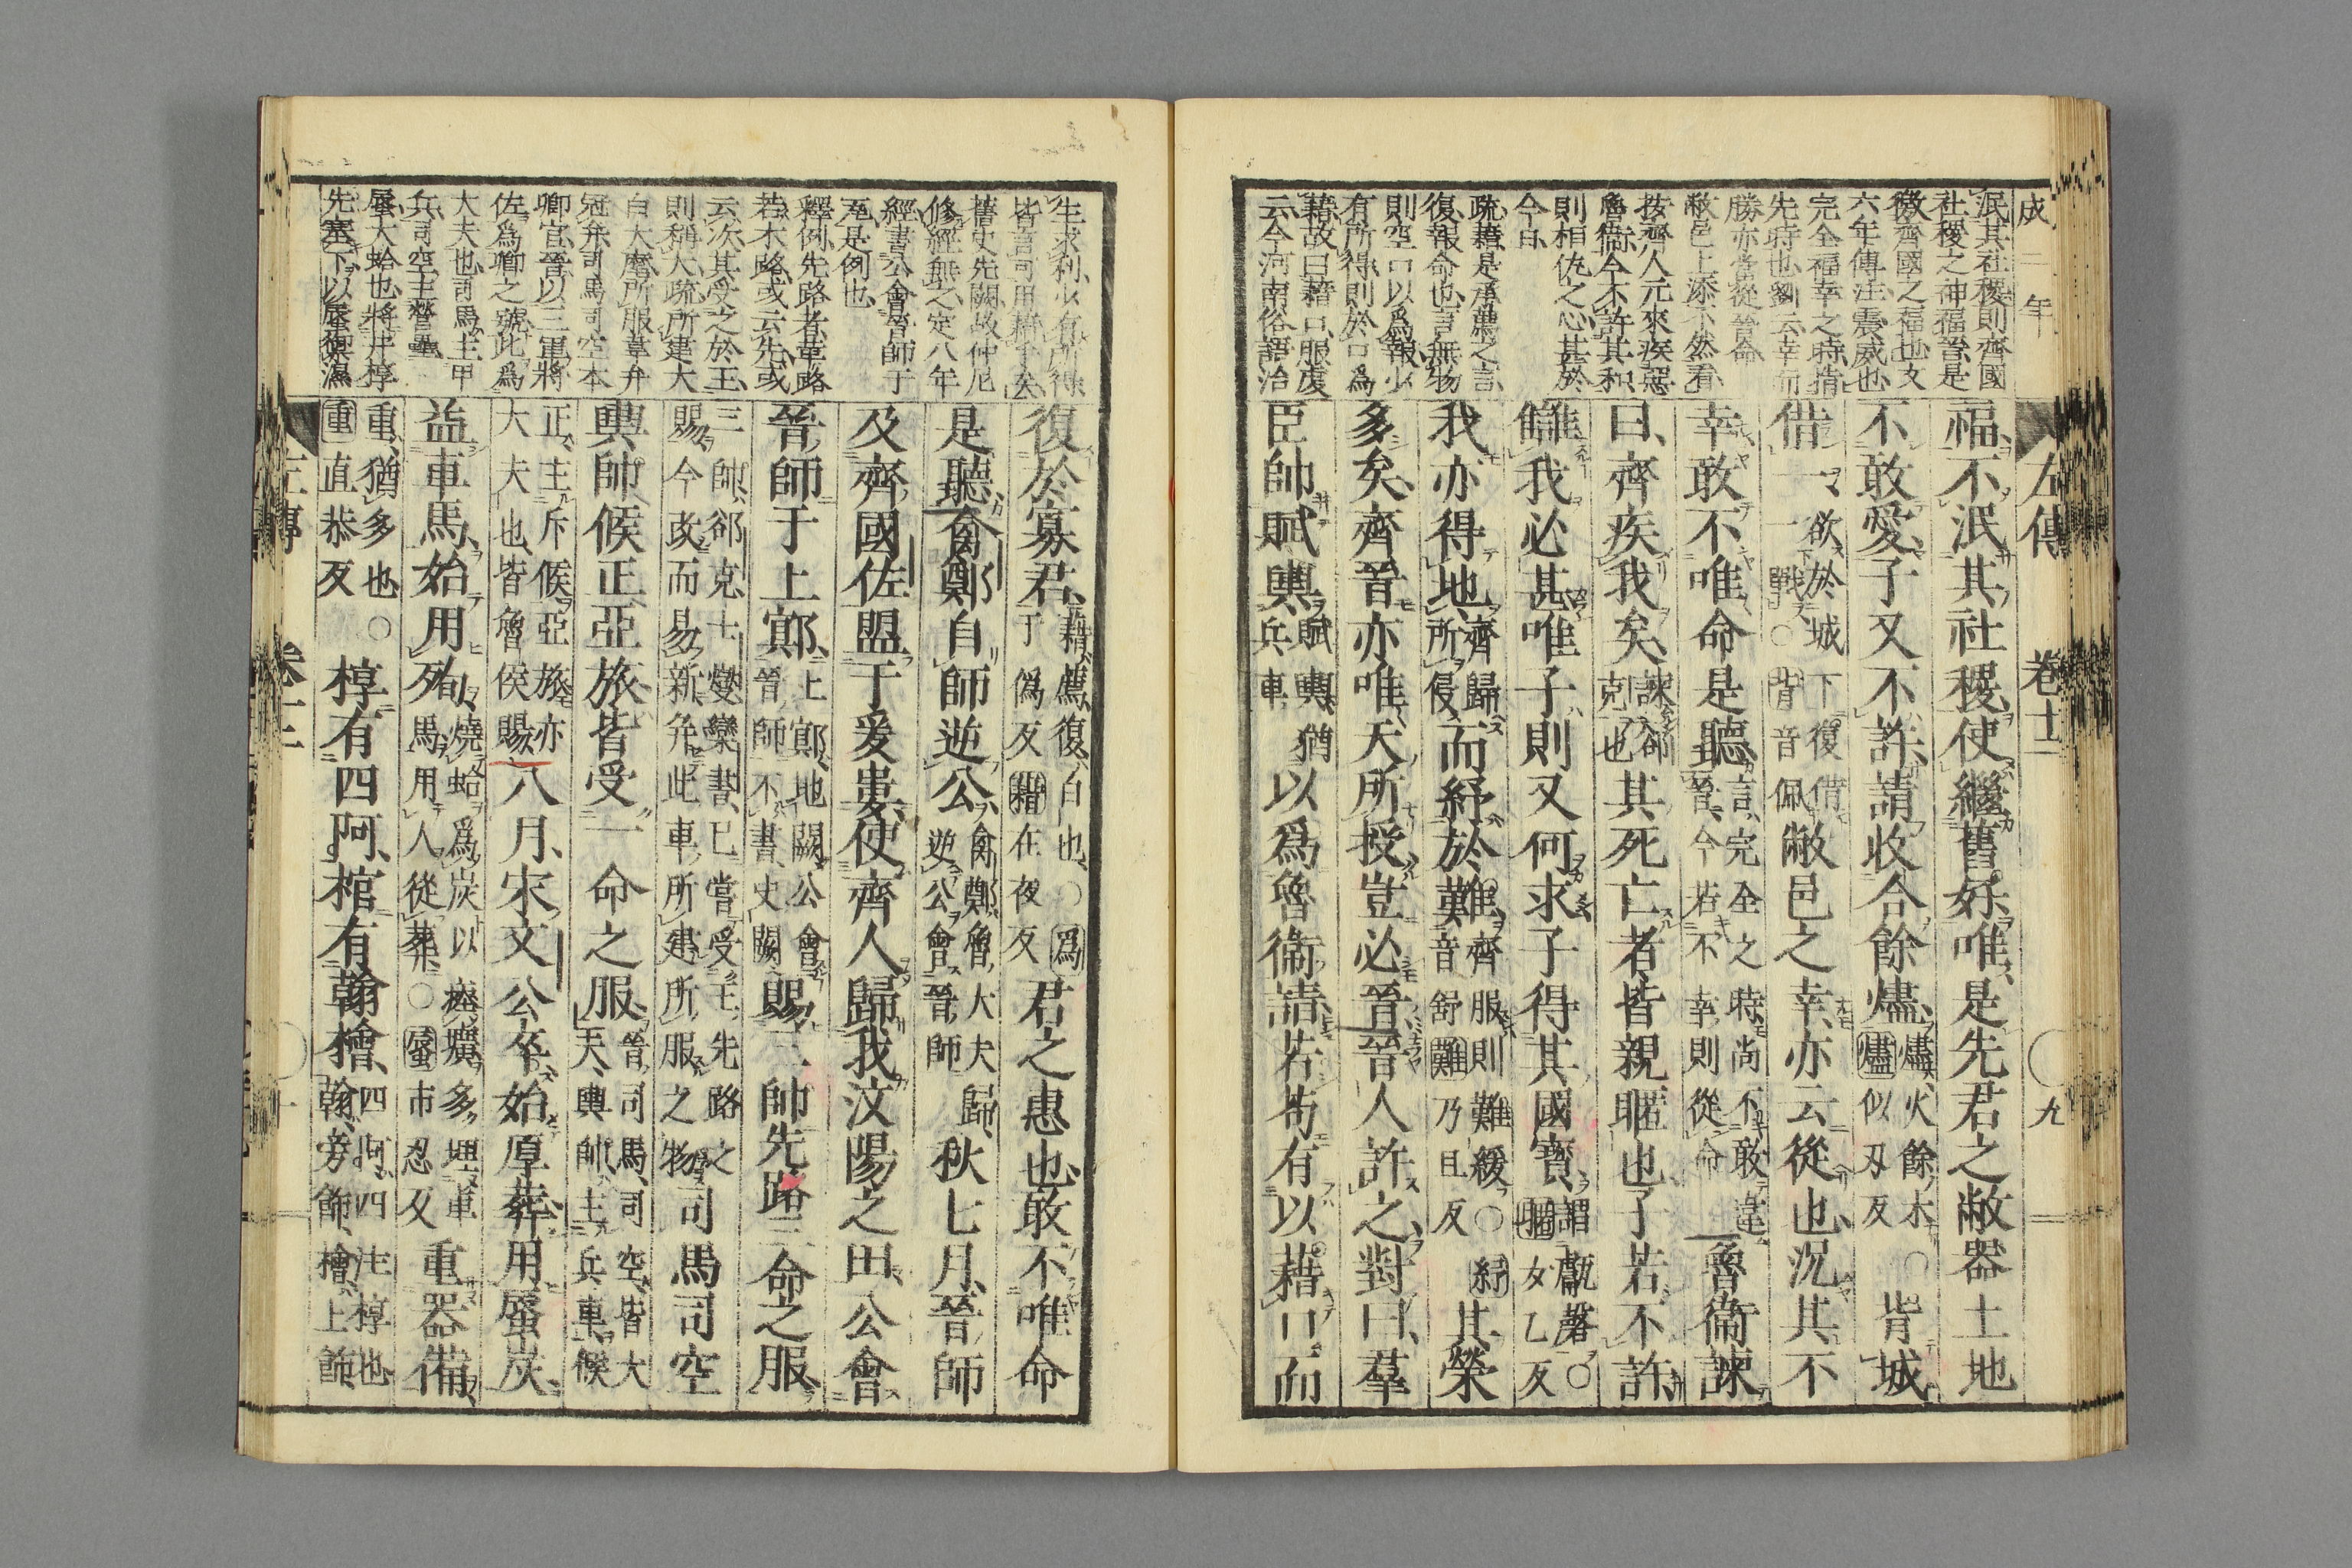 成二年
左傳 卷十二 九
泯其社稷則齊國
社稷之神福晉是
徼齊國之福也文
六年傳注震威也
完全福幸之時指
先時也劉云幸而
勝亦當從晉命
敝邑上添不然看
按齊人元來疾惡
魯衛今不許其和
則相仇之心甚於
今日
疏藉是承薦之言
復報命也言無物
則空口以爲報少
有所得則於口爲
藉故曰藉口服虔
云今河南俗語治
福、不泯其社稷、使繼舊好、唯是先君之敝器土地
不敢愛、子又不許、請收合餘燼、燼、火餘木、○燼似刃反背城
借一、欲於城下復借一戰、○背音佩敝邑之幸、亦云從也、況其不
幸、敢不唯命是聽、言完全之時、尚不敢違晉、今若不幸、則從命魯衛諫
曰、齊疾我矣、諫郤克也其死亡者、皆親暱也、子若不許、
讎我必甚、唯子則又何求、子得其國寶、謂甗磬、○暱女乙反
我亦得地、齊歸所侵、而紓於難、齊服則難緩、○紓音舒難乃旦反其榮
多矣、齊晉亦唯天所授、豈必晉、晉人許之、對曰、羣
臣帥賦輿、賦輿、猶兵車以爲魯衛請、若苟有以藉口、而
生求利少有所得
皆言可用藉手矣
舊史先闕故仲尼
修經無之定八年
經書公會晉師于
瓦是例也
釋例先路者革路
若木路或云先或
云次其受之於王
則稱大疏所建大
白大麾所服韋弁
冠弁司馬司空本
卿官晉以三軍將
佐爲卿之號此爲
大夫也司馬主甲
兵司空主營壘
蜃大蛤也將井椁
先塞下以蜃禦濕
復於寡君、藉、薦、復、白也、○爲于僞反藉在夜反君之惠也、敢不唯命
是聽、禽鄭自師逆公、禽鄭、魯大夫歸逆公會晉師秋七月、晉師
及齊國佐盟于爰婁、使齊人歸我汶陽之田、公會
晉師于上鄍、上鄍、地闕、公會晉師不書、史闕賜三帥先路三命之服、
三帥、郤克士燮欒書、已嘗受王先路之賜、今改而易新、并此車所建所服之物司馬司空
輿帥候正亞旅皆受一命之服、晉司馬、司空、皆大夫、輿帥、主兵車、候
正、主斥候、亞旅、亦大夫也、皆魯侯賜八月、宋文公卒、始厚葬、用蜃炭、
益車馬、始用殉、燒蛤爲炭以瘞壙、多埋車馬、用人從葬、○蜃市忍反重器備、
重、猶多也、○重直恭反椁有四阿、棺有翰檜、四阿、四注椁也、翰、旁飾、檜、上飾、
左傳 卷十二